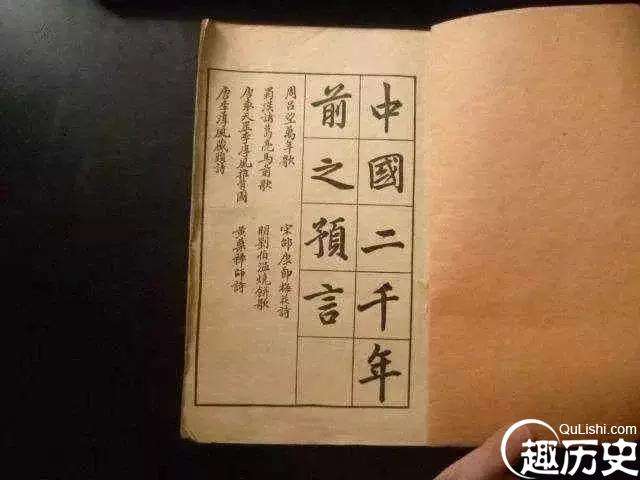 中國二千年
前之預言
周呂望萬年歌
蜀漢諸葛亮馬前歌
唐袁天罡李淳風推背圖
唐李淳風藏頭詩
宋邵康節梅花詩
明劉伯溫燒餅歌
黃蘗禪師詩
QuLishi.com
趣历史